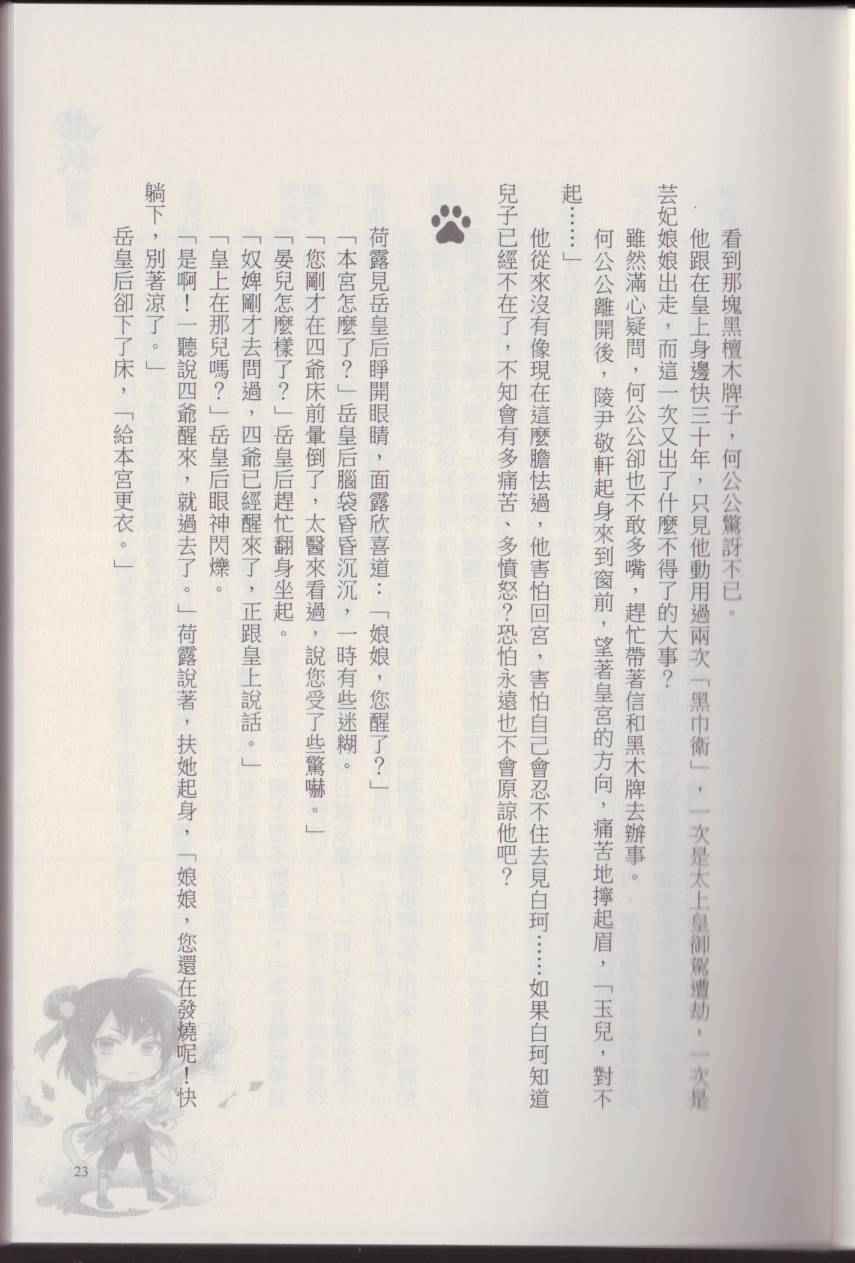 看到那塊黑檀木牌子，何公公驚訝不已。
他跟在皇上身邊快三十年，只見他動用過兩次「黑巾衛」，一次是太上皇御駕遭劫，一次是
芸妃娘娘出走，而這一次又出了什麼不得了的大事？
雖然滿心疑問，何公公卻也不敢多嘴，趕忙帶著信和黑木牌去辦事。
何公公離開後，陵尹敬軒起身來到窗前，望著皇宮的方向，痛苦地擰起眉，「玉兒，對不
起……」
他從來沒有像現在這麼膽怯過，他害怕回宮，害怕自己會忍不住去見白珂……如果白珂知道
兒子已經不在了，不知會有多痛苦、多憤怒？恐怕永遠也不會原諒他吧？
荷露見岳皇后睜開眼睛，面露欣喜道：「娘娘，您醒了？」
「本宮怎麼了？」岳皇后腦袋昏昏沉沉，一時有些迷糊。
「您剛才在四爺床前暈倒了，太醫來看過，說您受了些驚嚇。」
「晏兒怎麼樣了？」岳皇后趕忙翻身坐起。
「奴婢剛才去問過，四爺已經醒來了，正跟皇上說話。」
「皇上在那兒嗎？」岳皇后眼神閃爍。
「是啊！一聽說四爺醒來，就過去了。」荷露說著，扶她起身，「娘娘，您還在發燒呢！快
躺下，別著涼了。」
岳皇后卻下了床，「給本宮更衣。」
23